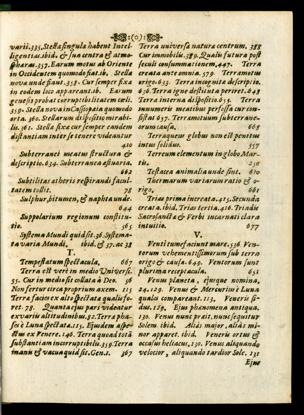 :(o):
varii. 335. Stella singula habent Intel-
ligentias. ibid. & sua centra & atmo-
sphæras. 357. Earum motus ab Oriente
in Occidentem quomodo fiat. ib. Stella
nova unde fiant. 358. Cur semper fixa
in eodem loco appareant. ib. Earum
genesis probat corruptibilitatem cæli.
359. Stella nova in Cassiopæa quomodo
orta. 360. Stellarum dispositio mirabi-
lis. 361. Stella fixa cur semper eandem
distantiam inter se tenere videantur
410
Subterranei meatus structura &
descriptio. 634. Subterranea æstuaria.
662
Subtilitas ætheris respirandi facul-
tatem tollit. 78
Sulphur, bitumen, & naphta unde
642
Suppolarium regionum constitu-
tio. 565
Systema Mundi quid sit. 36. Systema-
ta varia Mundi, ibid. & 37. ac 38
T.
Tempestatum spectacula, 667
Terra est verè in medio Universi.
35. Cur in medio sit collata à Deo. 36
Non fertur circa proprium axem. 115
Terra facies ex alto spectata qualis fo-
ret. 78. Quanta ejus pars videatur
ex variis altitudinibus. 92. Terra pha-
ses è Luna spectata. 115. Ejusdem aspe-
ctus ex Venere. 146. Terra quoad totā
substantiam incorruptibilis. 359. Terra
inanis & vacua quid sit. Gen. 1. 367
Terra universa natura centrum, 383
Cur immobilis. 386. Qualis futura post
seculi consummationem, 447. Terra
creata ante omnia. 579. Terra motus
origo. 633. Terra incognita descriptio.
630. Terra igne destituta periret. 648
Terra interna dispositio. 656. Terra
innumeris meatibus perfossa cur con-
stet 657. Terramotuum subterrane-
orum causa, 665
Terraqueus globus non est penitus
intus solidus. 557
Terreum elementum in globo Mar-
tis, 238
Testacea animalia unde sint, 670
Thermarum variarum ratio & o-
rigo, 661
Trias prima increata, 415. Secunda
creata. ibid. Trias tertia, 416. Triadis
Sacrosanctæ & Verbi incarnati clara
intuitio. 677
V.
Venti tumefaciunt mare, 536. Ven-
torum vehementissimorum sub terra
origo & causa. 649. Ventorum sunt
plurima receptacula. 651
Venus planeta, ejusque nomina,
24. 129. Venus & Mercurius è Luna
qualis compareant. 113. Veneris si-
dus. 129. Ejus phænomena antiqua.
130. Venus nunc præit, nunc sequitur
Solem ibid. Aliàs major, aliàs mi-
nor apparet. ibid. Veneris ortus &
occasus heliacus, 130. Venus aliquando
velocior, aliquando tardior Sole. 131
Ejus